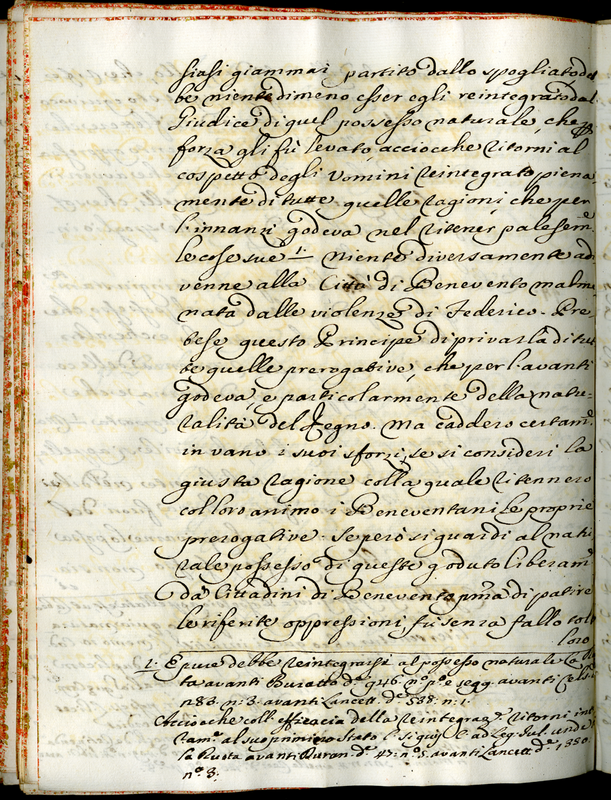 siasi giammai partito dallo spogliato deb
be niente dimeno esser egli reintegrato dal
Giudice di quel possesso naturale, che p
forza gli fù levato, acciocche ritorni al
cospetto degli Uomini reintegrato piena
mente di tutte quelle ragioni, che per
l'innanzi godeva nel ritener palesem.e
le cose sue 1. Niente diversamente ad
venne alla Città di Benevento malme
nata dalle violenze di Federico. Pre
tese questo Principe di privarla di tut
te quelle prerogative, che per l'avanti
godeva, e particolarmente della natu=
ralità del Regno. Ma caddero certam.e
in vano i suoi sforzi, se si consideri la
giusta ragione colla quale ritennero
col loro animo i Beneventani le proprie
prerogative. Se però si guardi al natu
rale possesso di queste goduto liberam.e
Da Cittadini di Benevento p̃ma di patire
le riferite oppressioni, fù senza fallo tolt
loro
1. E pure debbe reintegrarsi al possesso naturale la Ro
ta avanti Buratto d.e 946. n.o p.o e segg. avanti Cels.
n83. n: 3. avanti Lancett. d.e 538. n: 1.
Acciocche coll'efficacia della reintegraz.e ritorni int
tam.e al suo primiero Stato l. si quis ad Leg. Jul. unde
la Ruota avanti Buran. d.e 47. n.o 5. avanti Lancett d.e 1330.
n.o 8.